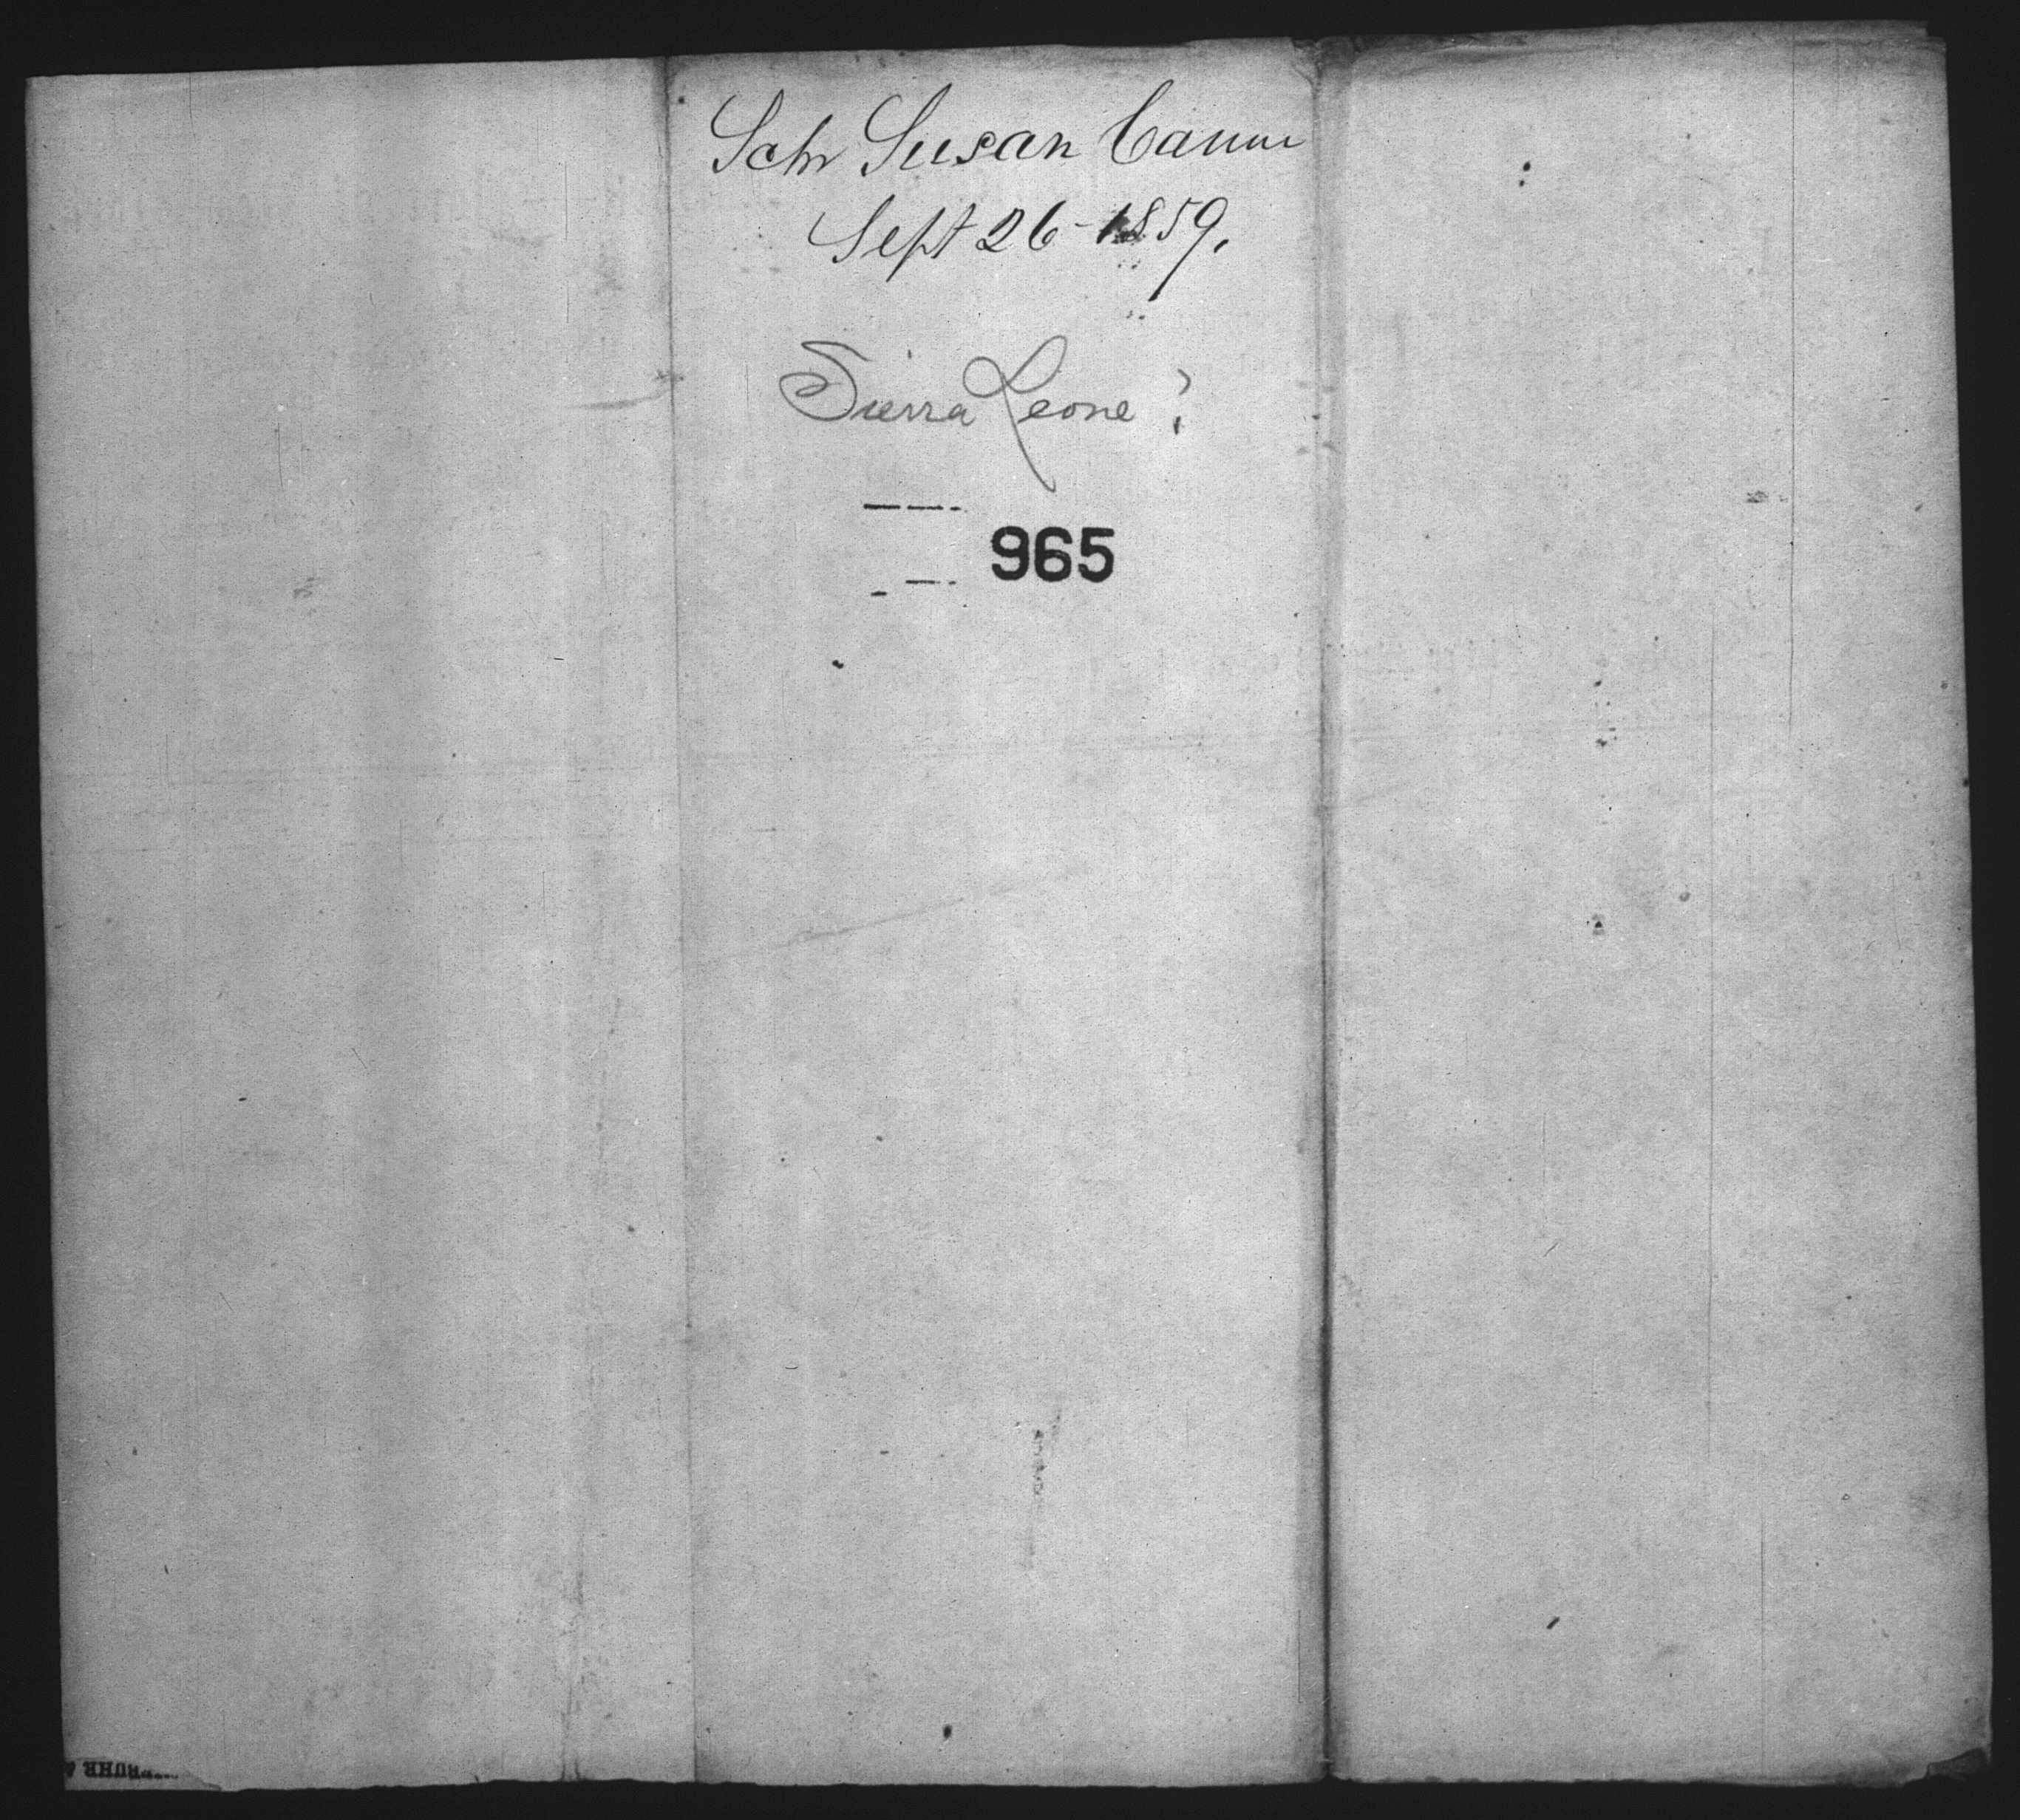 Schr Susan Cannon
Sept 26-1859.
Sierra Leone?
965